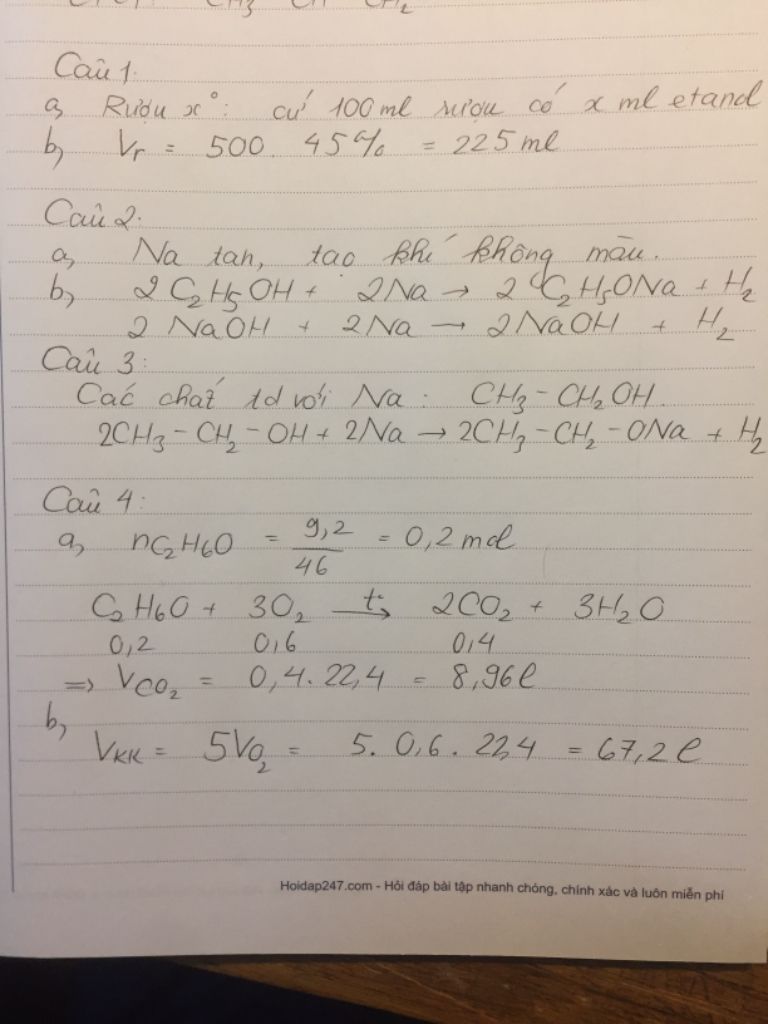 CH3 CH CH2
Câu 1.
a, Rượu x°: cứ 100ml rượu có x ml etanol
b, Vr = 500. 45% = 225ml
Câu 2.
a, Na tan, tạo khí không màu.
b, 2C2H5OH + 2Na → 2C2H5ONa + H2
2NaOH + 2Na → 2NaOH + H2
Câu 3:
Các chất td với Na: CH3-CH2OH.
2CH3-CH2-OH + 2Na → 2CH3-CH2-ONa + H2
Câu 4:
a, nC2H6O = 9,2/46 = 0,2 mol
C2H6O + 3O2 t°→ 2CO2 + 3H2O
0,2 0,6 0,4
=> VCO2 = 0,4. 22,4 = 8,96l
b,
VKK = 5VO2 = 5. 0,6. 22,4 = 67,2l
Hoidap247.com - Hỏi đáp bài tập nhanh chóng, chính xác và luôn miễn phí